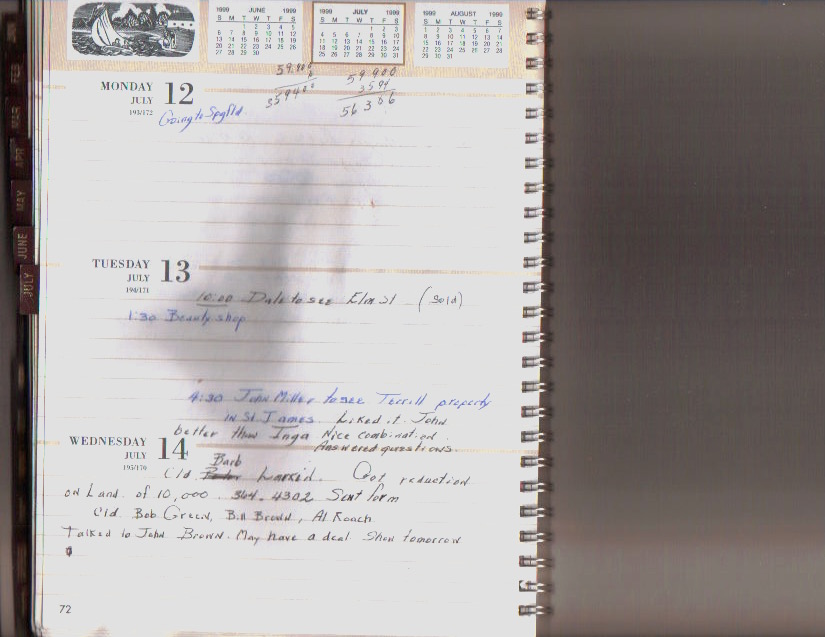 1999 JUNE 1999
S M T W T F S
1 2 3 4 5
6 7 8 9 10 11 12
13 14 15 16 17 18 19
20 21 22 23 24 25 26
27 28 29 30
1999 JULY 1999
S M T W T F S
1 2 3
4 5 6 7 8 9 10
11 12 13 14 15 16 17
18 19 20 21 22 23 24
25 26 27 28 29 30 31
1999 AUGUST 1999
S M T W T F S
1 2 3 4 5 6 7
8 9 10 11 12 13 14
15 16 17 18 19 20 21
22 23 24 25 26 27 28
29 30 31
59.900
59 900
3594
56 306
MONDAY 12
JULY
193/172
Going to Spgfld
TUESDAY 13
JULY
194/171
10:00 Dale to see Elm St (Sold)
1:30 Beauty shop
4:30 John Miller to see Terrill property
in St. James. Liked it. John
better than Inga Nice combination.
Answered questions.
WEDNESDAY 14
JULY
195/170
Barb
Cld. Larkin. Got reduction
on Land of 10,000. 364.4302 Sent form
Cld. Bob Green, Bill Brown, Al Roach
Talked to John Brown. May have a deal Show tomorrow
72
FEB
MAR
APR
MAY
JUNE
JULY